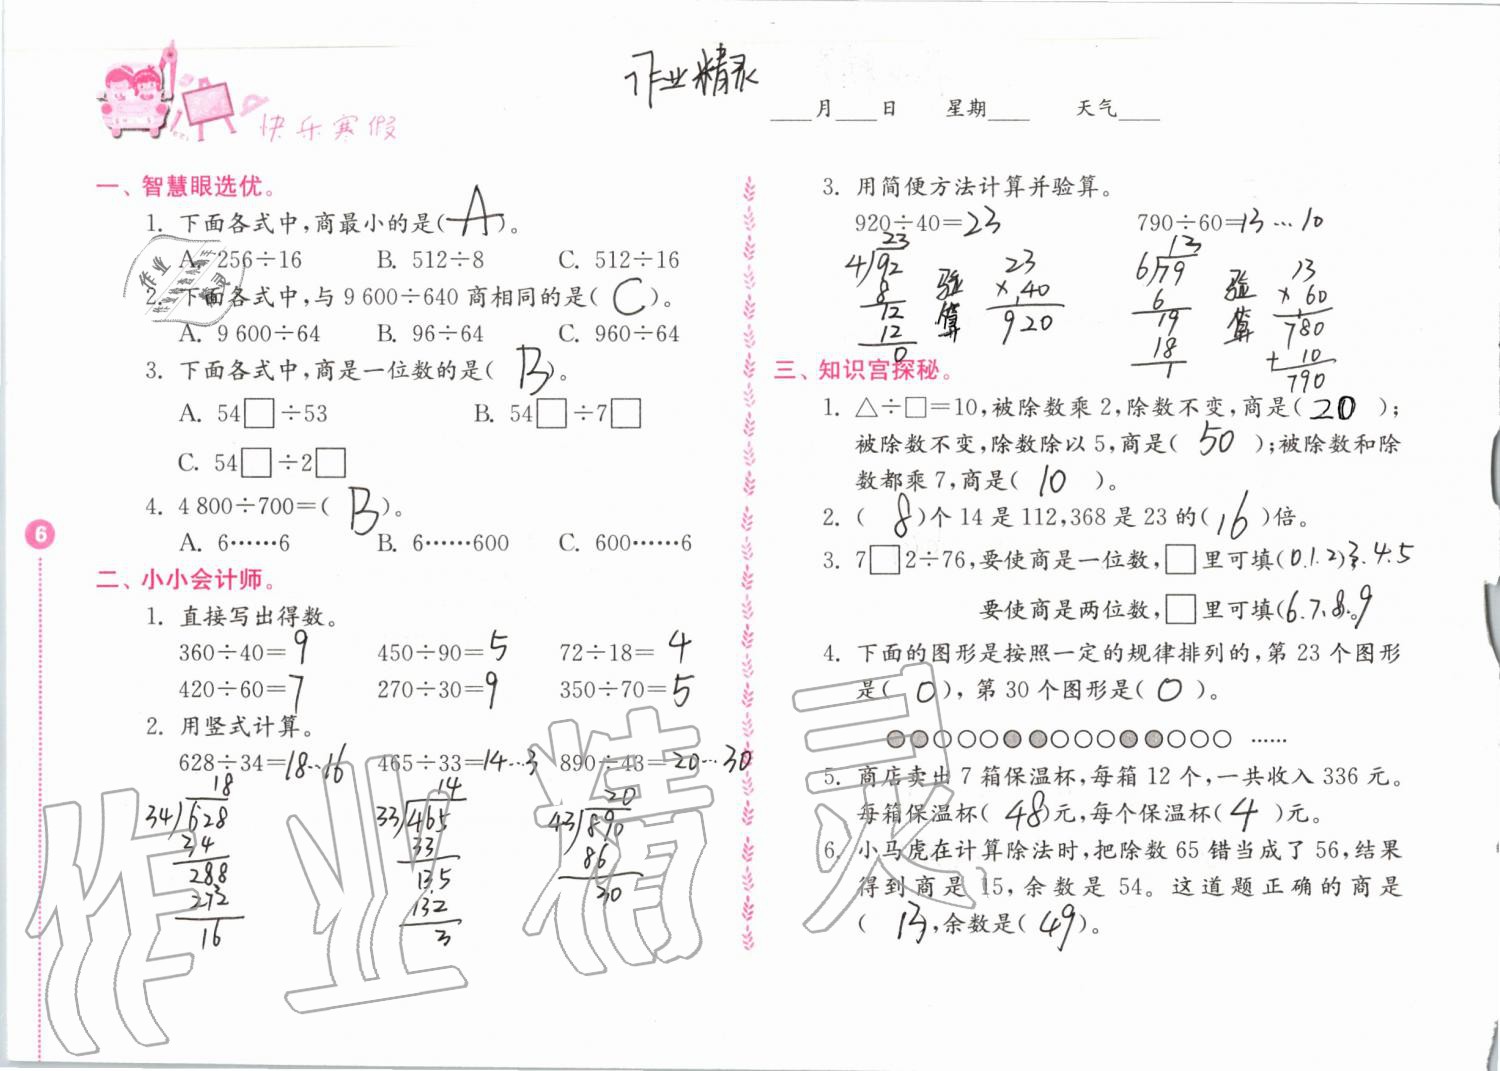 作业精灵
快乐寒假
____月____日 星期____ 天气____
一、智慧眼选优。
1. 下面各式中,商最小的是( A )。
A. 256÷16 B. 512÷8 C. 512÷16
2. 下面各式中,与9 600÷640商相同的是( C )。
A. 9 600÷64 B. 96÷64 C. 960÷64
3. 下面各式中,商是一位数的是( B )。
A. 54□÷53 B. 54□÷7□
C. 54□÷2□
4. 4 800÷700=( B )。
A. 6……6 B. 6……600 C. 600……6
6
二、小小会计师。
1. 直接写出得数。
360÷40=9 450÷90=5 72÷18=4
420÷60=7 270÷30=9 350÷70=5
2. 用竖式计算。
628÷34=18…16 465÷33=14…3 890÷43=20…30
18 14 20
34)628 33)465 43)890
34 33 86
288 135 30
272 132
16 3
3. 用简便方法计算并验算。
920÷40=23 790÷60=13…10
23 13
4)92 验算 23 6)79 验算 13
8 ×40 6 ×60
12 920 19 780
12 18 +10
0 1 790
三、知识宫探秘。
1. △÷□=10,被除数乘2,除数不变,商是( 20 );
被除数不变,除数除以5,商是( 50 );被除数和除
数都乘7,商是( 10 )。
2. ( 8 )个14是112,368是23的( 16 )倍。
3. 7□2÷76,要使商是一位数,□里可填(0.1.2.3.4.5
要使商是两位数,□里可填(6.7.8.9
4. 下面的图形是按照一定的规律排列的,第23个图形
是( ○ ),第30个图形是( ○ )。
●●○○○○●●○○○○●●○○○……
5. 商店卖出7箱保温杯,每箱12个,一共收入336元。
每箱保温杯( 48 )元,每个保温杯( 4 )元。
6. 小马虎在计算除法时,把除数65错当成了56,结果
得到商是15,余数是54。这道题正确的商是
( 13 ),余数是( 49 )。
作业精灵